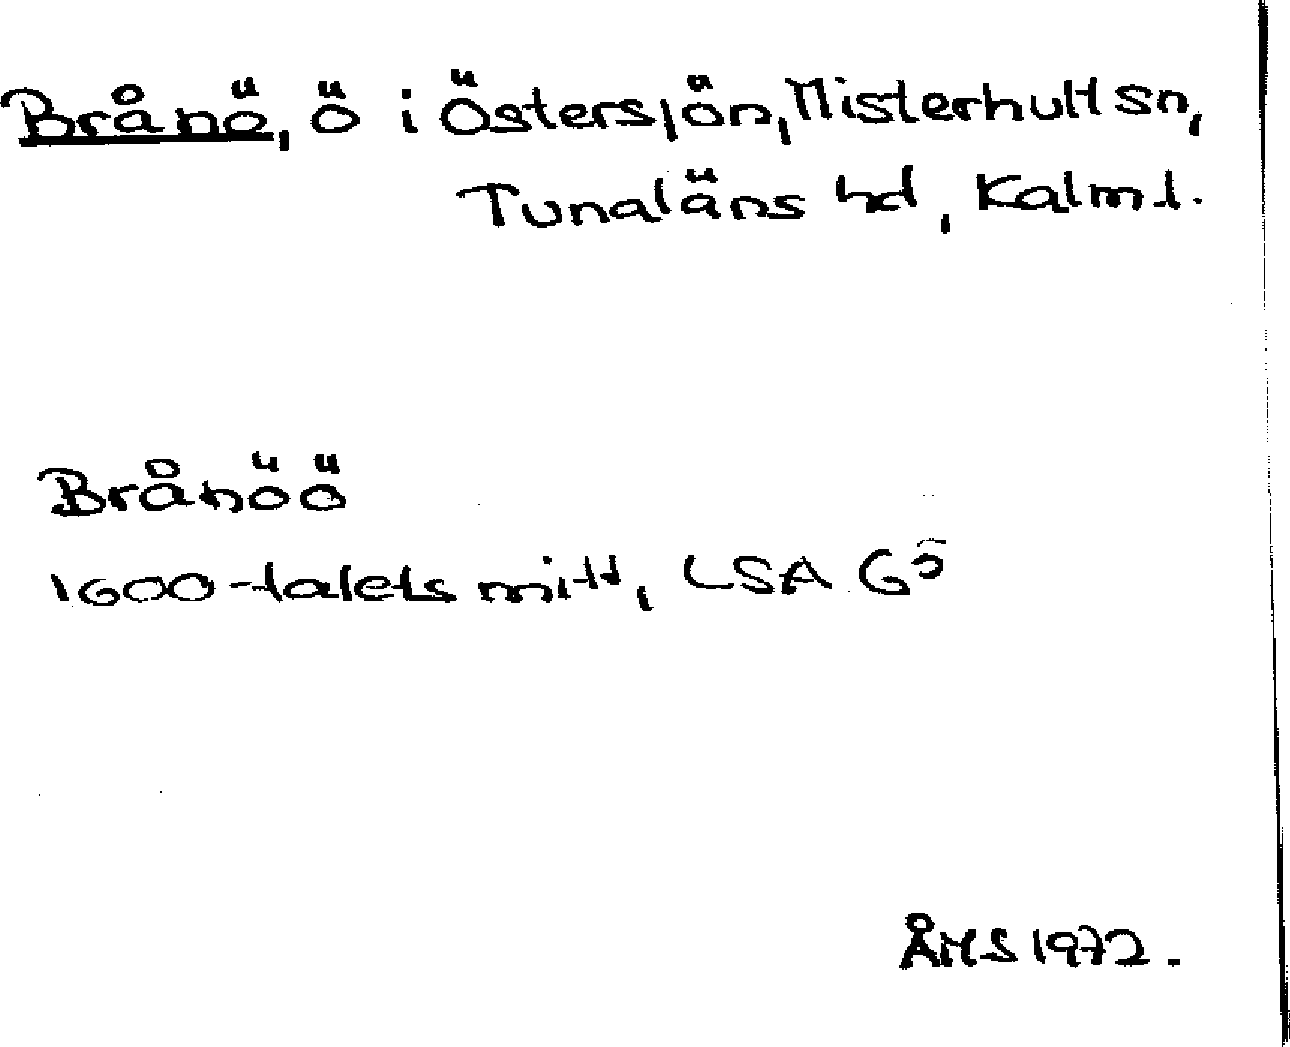 Brånö, ö i Östersjön, Misterhult sn,
Tunaläns hd, Kalm. l.
Brånöö
1600-talets mitt, LSA G5
ÅHS 1972.